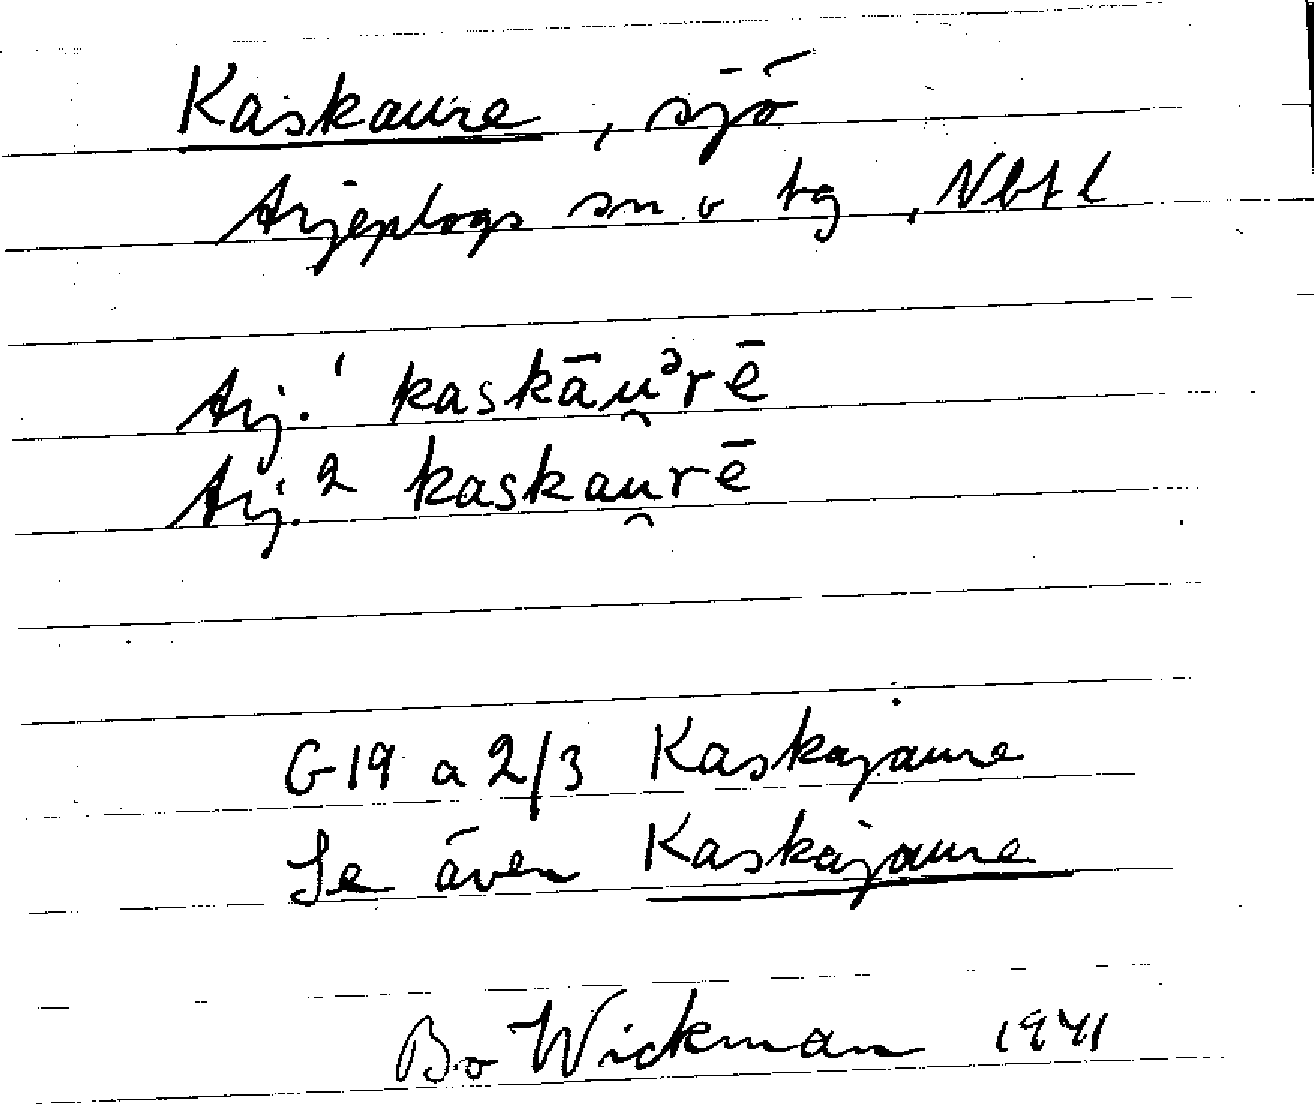 Kaskaure, sjö
Arjeplogs sn o tg, Nbtl
Arj.¹ kaskāu̯ᵊrē
Arj.² kaskau̯rē
G19 a 2/3 Kaskajaure
Se även Kaskajaure
Bo Wickman 1941